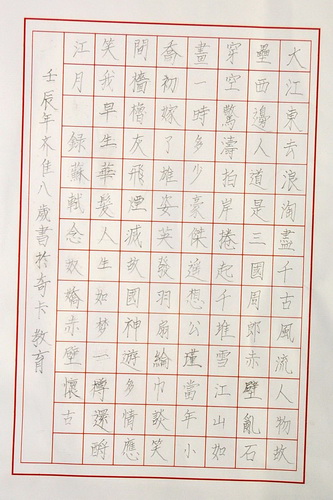 大江東去浪淘盡千古風流人物故
壘西邊人道是三國周郎赤壁亂石
穿空驚濤拍岸捲起千堆雪江山如
畫一時多少豪傑遙想公瑾當年小
喬初嫁了雄姿英發羽扇綸巾談笑
間檣櫓灰飛煙滅故國神遊多情應
笑我早生華髮人生如夢一樽還酹
江月 錄蘇軾念奴嬌赤壁懷古
壬辰年 八歲書於奇卡 教育